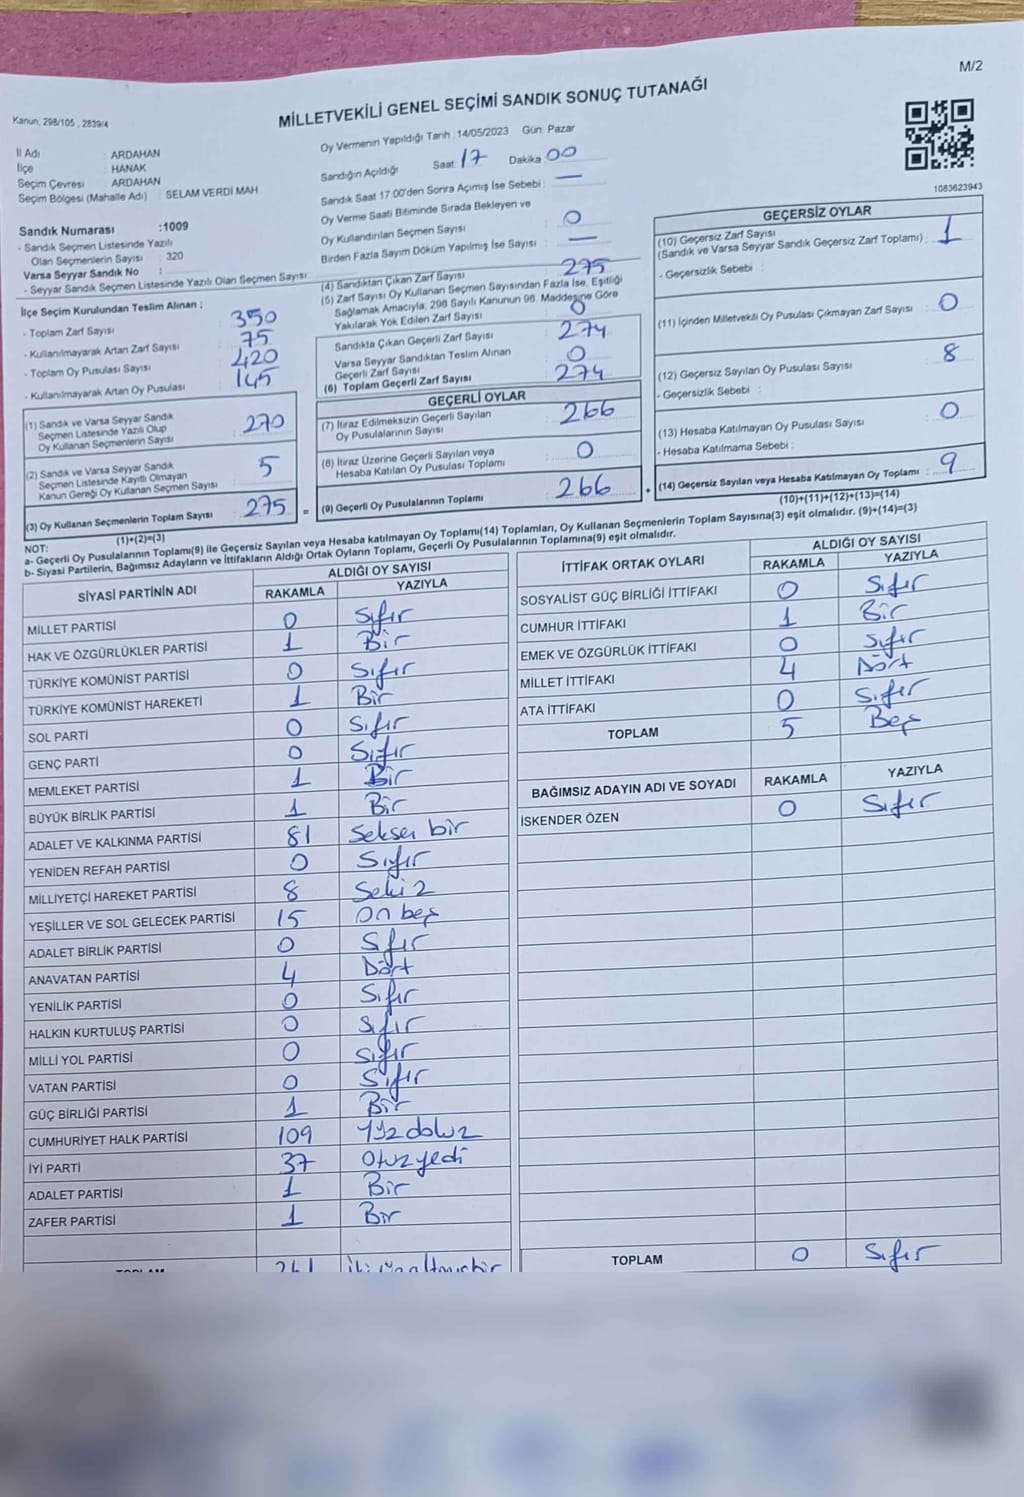 M/2
MİLLETVEKİLİ GENEL SEÇİMİ SANDIK SONUÇ TUTANAĞI
Kanun: 298/105 , 2839/4
İl Adı : ARDAHAN
İlçe : HANAK
Seçim Çevresi : ARDAHAN
Seçim Bölgesi (Mahalle Adı) : SELAM VERDİ MAH.
Sandık Numarası :1009
- Sandık Seçmen Listesinde Yazılı
Olan Seçmenlerin Sayısı : 320
Varsa Seyyar Sandık No :
- Seyyar Sandık Seçmen Listesinde Yazılı Olan Seçmen Sayısı :
Oy Vermenin Yapıldığı Tarih :14/05/2023 Gün: Pazar
Sandığın Açıldığı Saat: 17 Dakika: 00
Sandık Saat 17:00'den Sonra Açımış İse Sebebi : —
Oy Verme Saati Bitiminde Sırada Bekleyen ve
Oy Kullandırılan Seçmen Sayısı : 0
Birden Fazla Sayım Döküm Yapılmış İse Sayısı : —
1083623943
İlçe Seçim Kurulundan Teslim Alınan ;
- Toplam Zarf Sayısı : 350
- Kullanılmayarak Artan Zarf Sayısı : 75
- Toplam Oy Pusulası Sayısı : 420
- Kullanılmayarak Artan Oy Pusulası : 145
(1) Sandık ve Varsa Seyyar Sandık
Seçmen Listesinde Yazılı Olup
Oy Kullanan Seçmenlerin Sayısı : 270
(2) Sandık ve Varsa Seyyar Sandık
Seçmen Listesinde Kayıtlı Olmayan
Kanun Gereği Oy Kullanan Seçmen Sayısı : 5
(3) Oy Kullanan Seçmenlerin Toplam Sayısı : 275
(1)+(2)=(3)
(4) Sandıktan Çıkan Zarf Sayısı : 275
(5) Zarf Sayısı Oy Kullanan Seçmen Sayısından Fazla İse, Eşitliği
Sağlamak Amacıyla; 298 Sayılı Kanunun 98. Maddesine Göre
Yakılarak Yok Edilen Zarf Sayısı : 0
Sandıkta Çıkan Geçerli Zarf Sayısı : 274
Varsa Seyyar Sandıktan Teslim Alınan
Geçerli Zarf Sayısı : 0
(6) Toplam Geçerli Zarf Sayısı : 274
GEÇERLİ OYLAR
(7) İtiraz Edilmeksizin Geçerli Sayılan
Oy Pusulalarının Sayısı : 266
(8) İtiraz Üzerine Geçerli Sayılan veya
Hesaba Katılan Oy Pusulası Toplamı : 0
= (9) Geçerli Oy Pusulalarının Toplamı : 266 +
GEÇERSİZ OYLAR
(10) Geçersiz Zarf Sayısı
(Sandık ve Varsa Seyyar Sandık Geçersiz Zarf Toplamı) : 1
- Geçersizlik Sebebi :
(11) İçinden Milletvekili Oy Pusulası Çıkmayan Zarf Sayısı : 0
(12) Geçersiz Sayılan Oy Pusulası Sayısı : 8
- Geçersizlik Sebebi :
(13) Hesaba Katılmayan Oy Pusulası Sayısı : 0
- Hesaba Katılmama Sebebi :
(14) Geçersiz Sayılan veya Hesaba Katılmayan Oy Toplamı : 9
(10)+(11)+(12)+(13)=(14)
NOT:
a- Geçerli Oy Pusulalarının Toplamı(9) ile Geçersiz Sayılan veya Hesaba katılmayan Oy Toplamı(14) Toplamları, Oy Kullanan Seçmenlerin Toplam Sayısına(3) eşit olmalıdır. (9)+(14)=(3)
b- Siyasi Partilerin, Bağımsız Adayların ve İttifakların Aldığı Ortak Oyların Toplamı, Geçerli Oy Pusulalarının Toplamına(9) eşit olmalıdır.
SİYASİ PARTİNİN ADI ALDIĞI OY SAYISI
RAKAMLA YAZIYLA
MİLLET PARTİSİ 0 Sıfır
HAK VE ÖZGÜRLÜKLER PARTİSİ 1 Bir
TÜRKİYE KOMÜNİST PARTİSİ 0 Sıfır
TÜRKİYE KOMÜNİST HAREKETİ 1 Bir
SOL PARTİ 0 Sıfır
GENÇ PARTİ 0 Sıfır
MEMLEKET PARTİSİ 1 Bir
BÜYÜK BİRLİK PARTİSİ 1 Bir
ADALET VE KALKINMA PARTİSİ 81 Seksen bir
YENİDEN REFAH PARTİSİ 0 Sıfır
MİLLİYETÇİ HAREKET PARTİSİ 8 Sekiz
YEŞİLLER VE SOL GELECEK PARTİSİ 15 On beş
ADALET BİRLİK PARTİSİ 0 Sıfır
ANAVATAN PARTİSİ 4 Dört
YENİLİK PARTİSİ 0 Sıfır
HALKIN KURTULUŞ PARTİSİ 0 Sıfır
MİLLİ YOL PARTİSİ 0 Sıfır
VATAN PARTİSİ 0 Sıfır
GÜÇ BİRLİĞİ PARTİSİ 1 Bir
CUMHURİYET HALK PARTİSİ 109 Yüzdokuz
İYİ PARTİ 37 Otuzyedi
ADALET PARTİSİ 1 Bir
ZAFER PARTİSİ 1 Bir
TOPLAM 261 İkiyüzaltmışbir
İTTİFAK ORTAK OYLARI ALDIĞI OY SAYISI
RAKAMLA YAZIYLA
SOSYALİST GÜÇ BİRLİĞİ İTTİFAKI 0 Sıfır
CUMHUR İTTİFAKI 1 Bir
EMEK VE ÖZGÜRLÜK İTTİFAKI 0 Sıfır
MİLLET İTTİFAKI 4 Dört
ATA İTTİFAKI 0 Sıfır
TOPLAM 5 Beş
BAĞIMSIZ ADAYIN ADI VE SOYADI RAKAMLA YAZIYLA
İSKENDER ÖZEN 0 Sıfır
TOPLAM 0 Sıfır